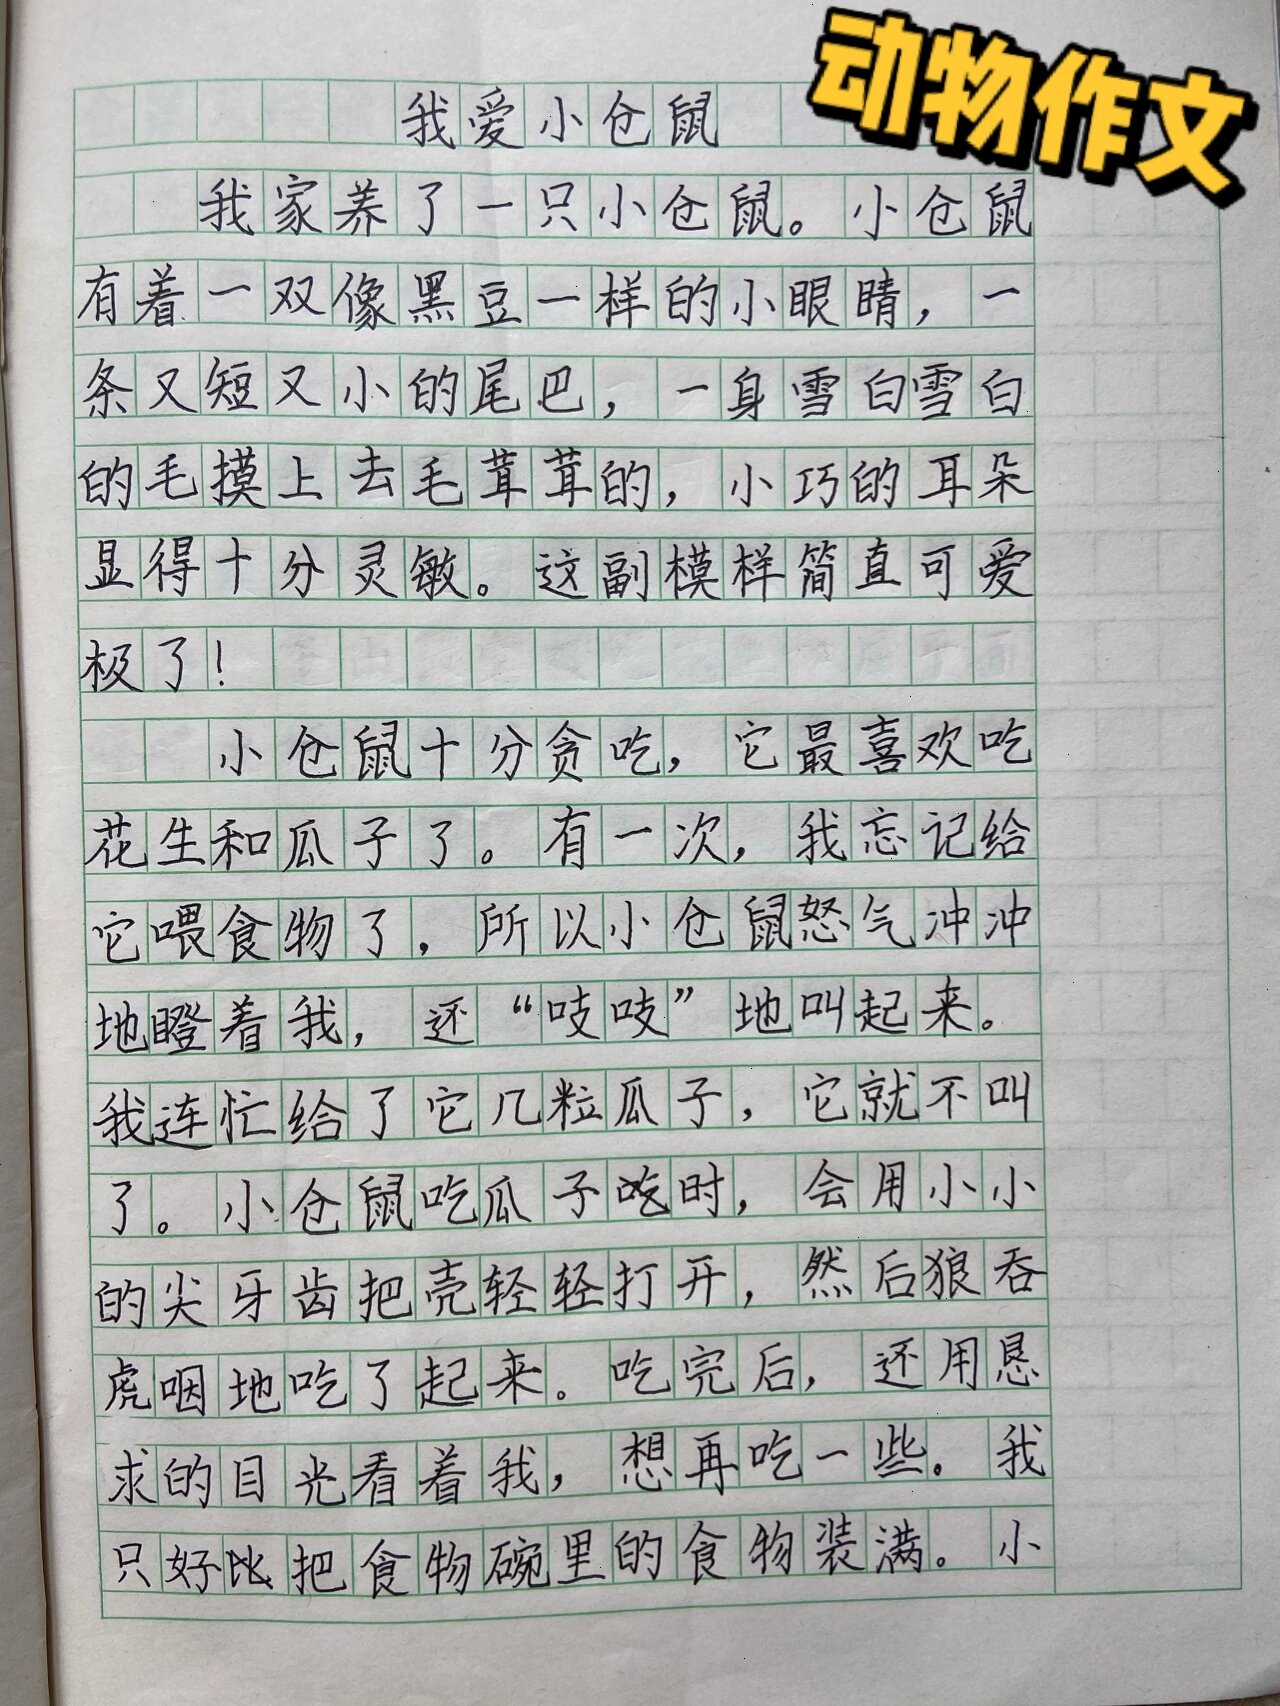 动物作文
我爱小仓鼠
我家养了一只小仓鼠。小仓鼠
有着一双像黑豆一样的小眼睛，一
条又短又小的尾巴，一身雪白雪白
的毛摸上去毛茸茸的，小巧的耳朵
显得十分灵敏。这副模样简直可爱
极了！
小仓鼠十分贪吃，它最喜欢吃
花生和瓜子了。有一次，我忘记给
它喂食物了，所以小仓鼠怒气冲冲
地瞪着我，还“吱吱”地叫起来。
我连忙给了它几粒瓜子，它就不叫
了。小仓鼠吃瓜子时，会用小小
的尖牙齿把壳轻轻打开，然后狼吞
虎咽地吃了起来。吃完后，还用恳
求的目光看着我，想再吃一些。我
只好把食物碗里的食物装满。小